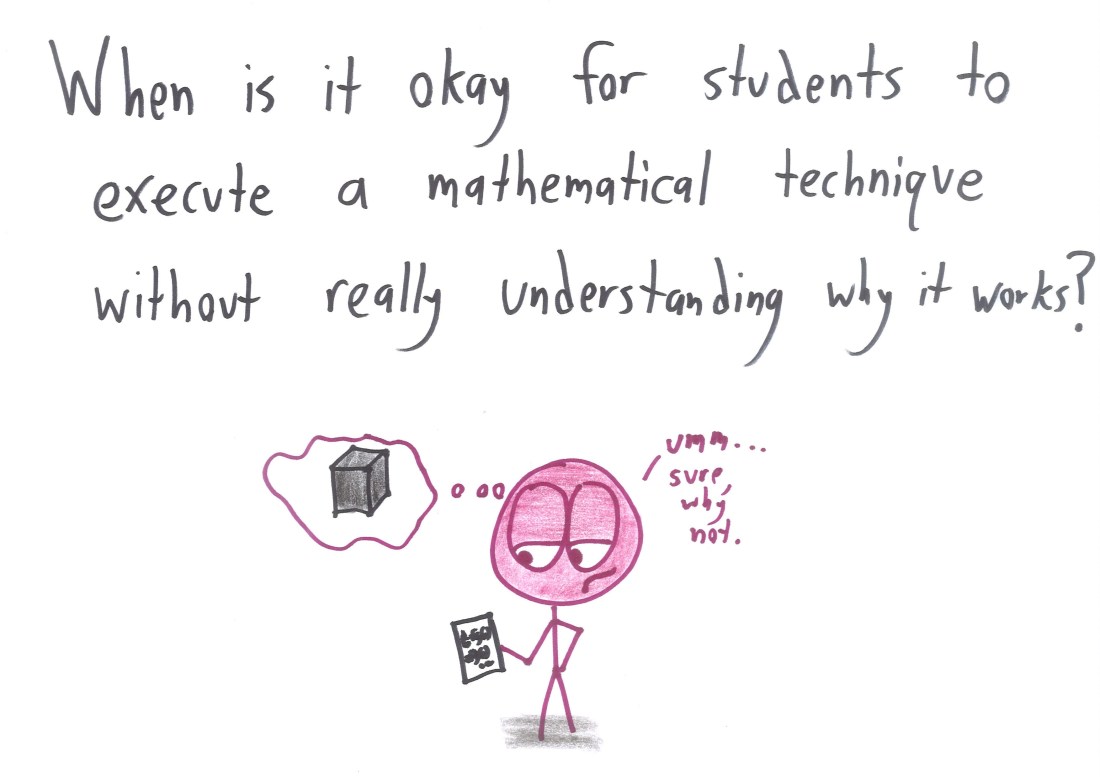 When is it okay for students to
execute a mathematical technique
without really understanding why it works?
umm...
sure,
why
not.